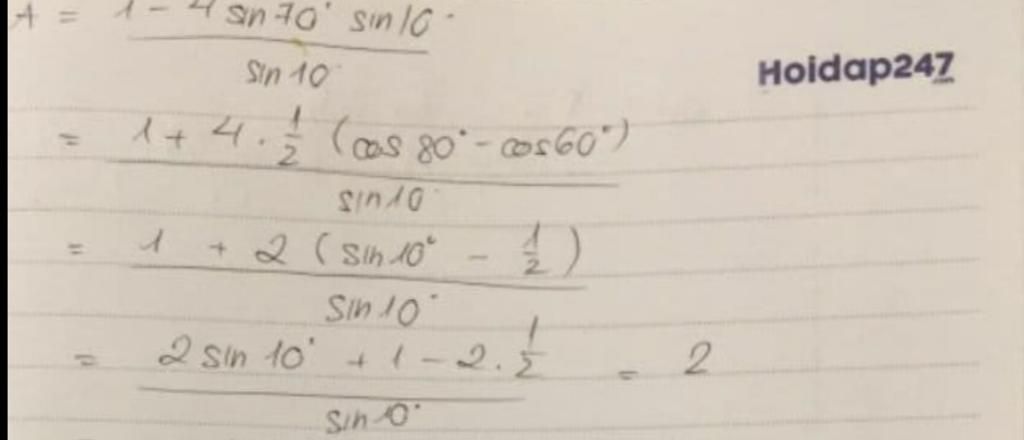 A = 1 - 4 sin 70° sin 10°
sin 10°
Hoidap247
.com
= 1 + 4 . 1/2 (cos 80° - cos 60°)
sin 10
= 1 + 2 (sin 10° - 1/2)
sin 10°
= 2 sin 10° + 1 - 2 . 1/2 = 2
sin 10°